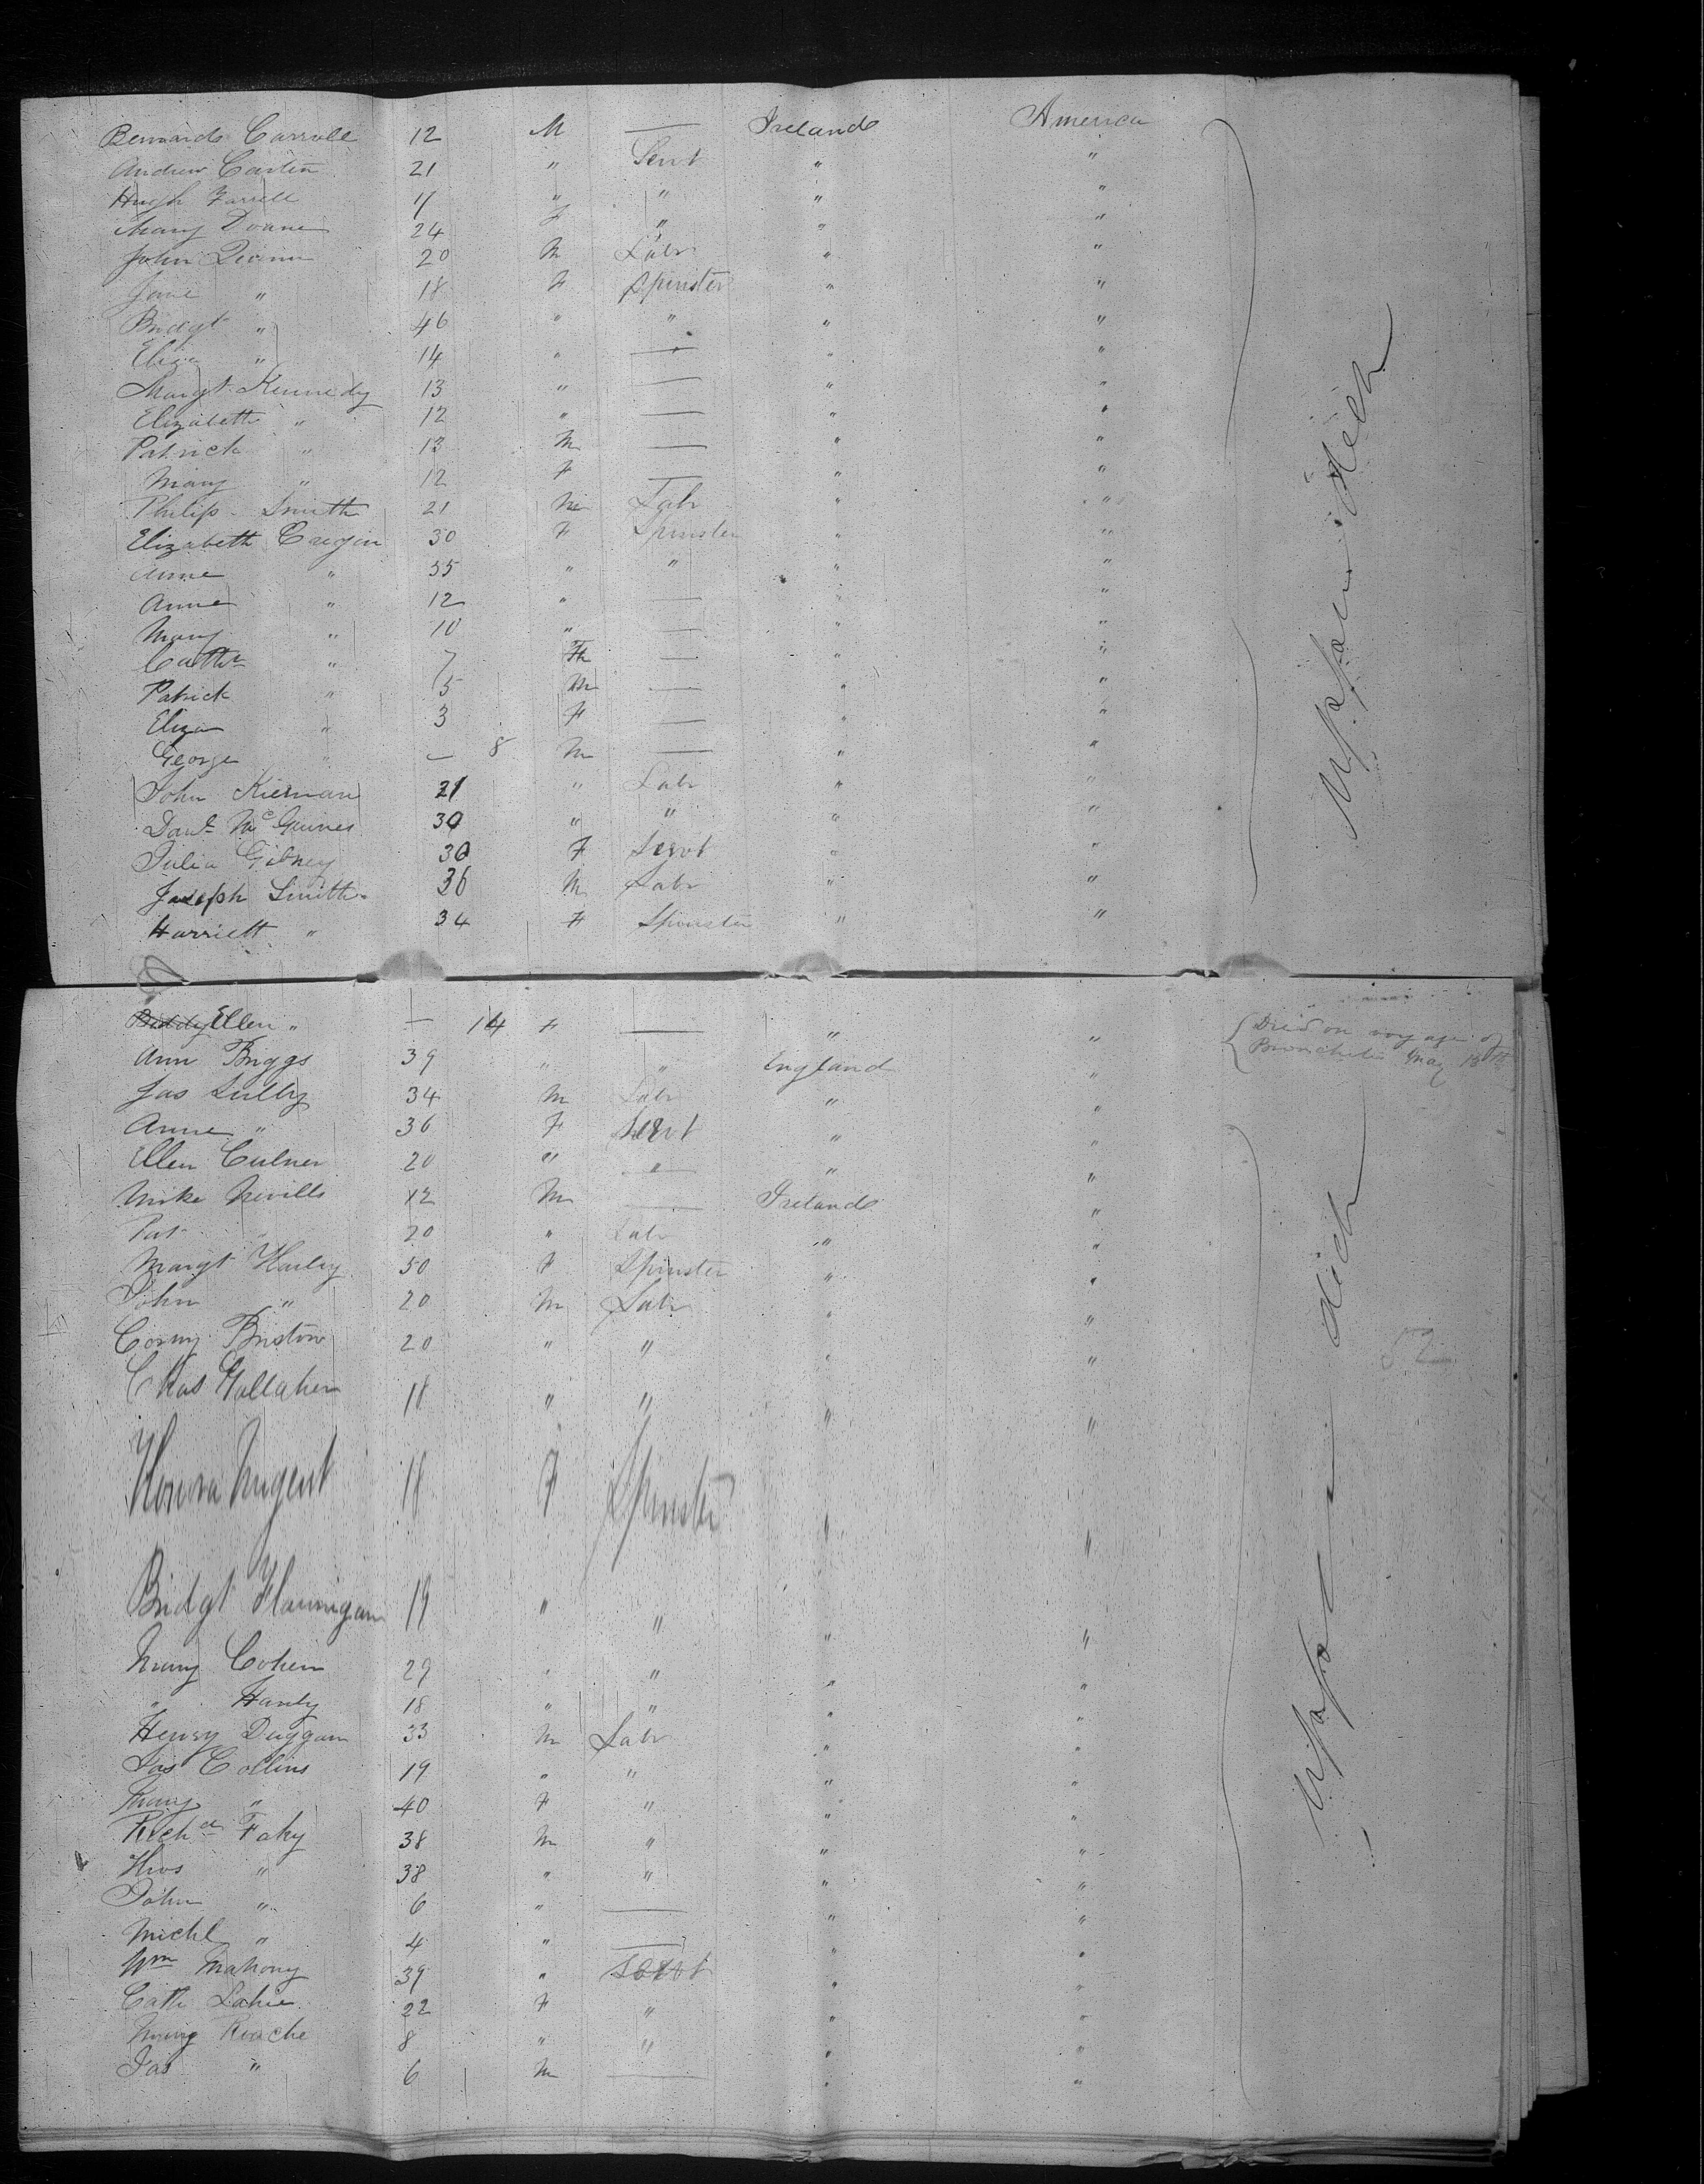 Bernard Carroll 12 M — Ireland America
Andrew Carlin 21 " Servt " "
Hugh Farrell 11 " " " "
Mary Doane 24 F " " "
John Quinn 20 M Labr " "
Jane " 18 F Spinster " "
Bridgt " 46 " " " "
Eliza " 14 " — " "
Margt Kennedy 13 " — " "
Elizabeth " 12 " — " "
Patrick " 13 M — " "
Mary " 12 F — " "
Philip Smith 21 M Labr " "
Elizabeth 30 F Spinster " "
Anne " 35 " " " "
Anne " 12 " — " "
Mary " 10 " — " "
Cathr " 7 — " "
Patrick " 5 M — " "
Eliza " 3 F — " "
George " — 8 M — " "
John Kiernan 21 " Labr " "
Danl McGuines 30 " " " "
Julia Gibney 30 F Servt " "
Joseph Smith 36 M Labr " "
Harriett " 34 F Spinster " "
Biddy Ellen " — 14 F — " " Died on voyage of
Bronchitis May 13th
Ann Briggs 39 " " England "
Jas Lully 34 M Labr " "
Anne " 36 F Servt " "
Ellen Culner 20 " " " "
Mike Nevills 12 M — Ireland "
Pat " 20 " Labr " "
Margt Harley 50 F Spinster " "
John " 20 M Labr " "
Corny Bristow 20 " " " "
Chas Gallaher 18 " " " "
Honora Nugent 18 F Spinster " "
Bridgt Flannigan 19 " " " "
Mary Cohen 29 " " " "
" Hanly 18 " " " "
Henry Duggan 33 M Labr " "
Jas Collins 19 " " " "
Mary " 40 F " " "
Richd Fahy 38 M " " "
Thos " 38 " " " "
John " 6 " — " "
Michl " 4 " — " "
Wm Mahony 39 " Servt " "
Cath Lahie 22 F " " "
Mary Roache 8 " " " "
Jas " 6 M — " "
52